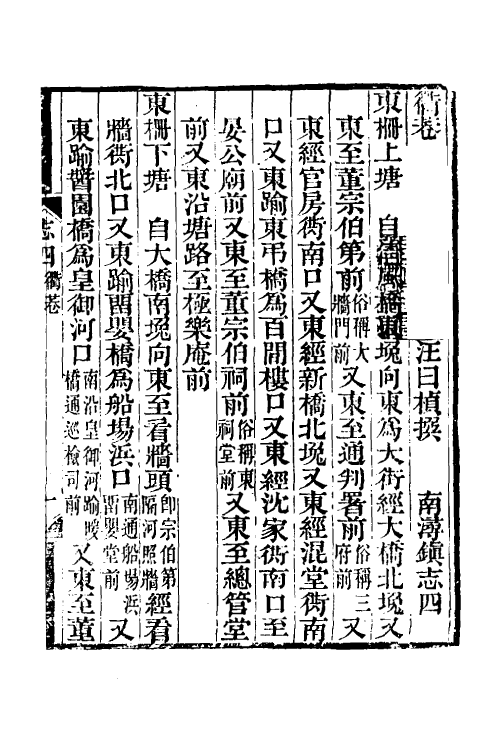 衖巷　汪曰楨撰　南潯鎮志四
東柵上塘　自橋東堍向東爲大街經大橋北堍又
東至董宗伯第前俗稱大牆門前又東至通判署前俗稱三府前又
東經官房衖南口又東經新橋北堍又東經混堂衖南
口又東踰東弔橋爲百間樓口又東經沈家衖南口至
晏公廟前又東至董宗伯祠前俗稱東祠堂前又東至總管堂
前又東沿塘路至極樂庵前
東柵下塘　自大橋南堍向東至看牆頭即宗伯第隔河照牆經看
牆衖北口又東踰畱嬰橋爲船場浜口南通船場浜畱嬰堂前又
東踰醬園橋爲皇御河口南沿皇御河踰橋通巡檢司前又東至董
志四　衖巷　一